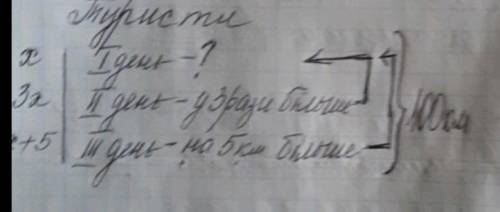 Туристи
x | I день - ?
3x | II день - у 3 рази більше
x+5 | III день - на 5 км більше
100 км